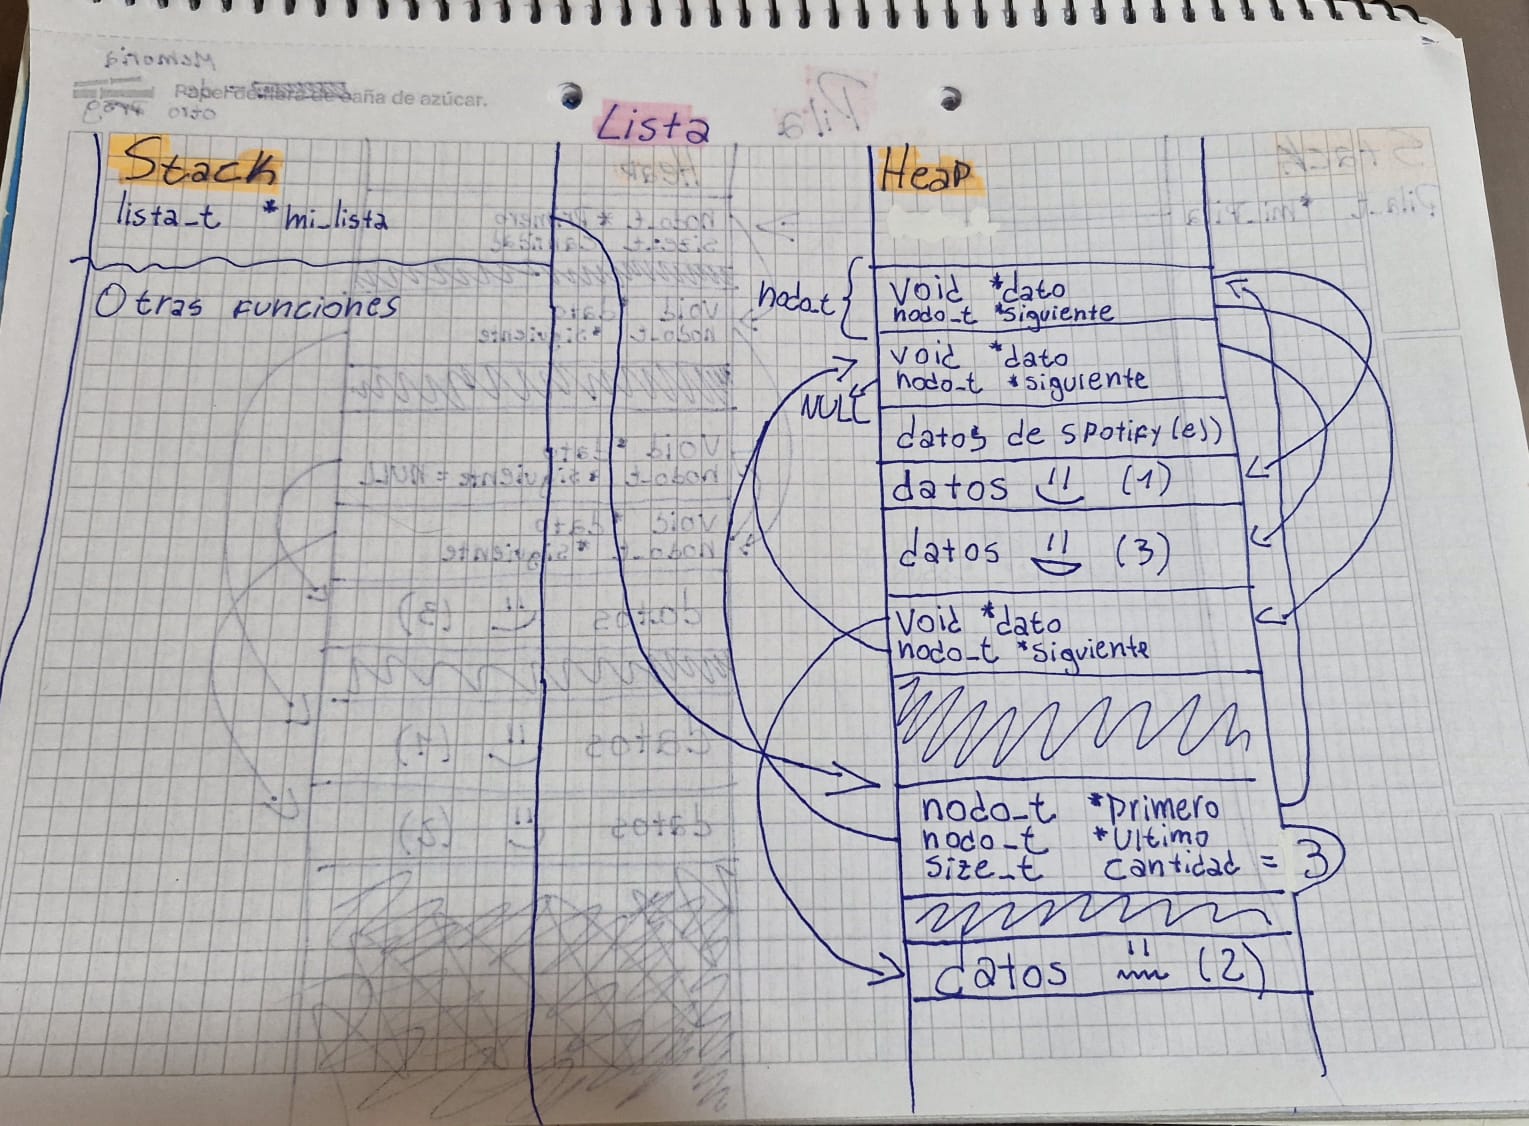 Papel de fibra de caña de azúcar.
Lista
Stack
lista_t *mi_lista
Otras funciones
Heap
nodo_t {
void *dato
nodo_t *siguiente
void *dato
nodo_t *siguiente
NULL
datos de spotify(es)
datos (1)
datos (3)
void *dato
nodo_t *siguiente
nodo_t *primero
nodo_t *ultimo
size_t cantidad = 3
datos (2)